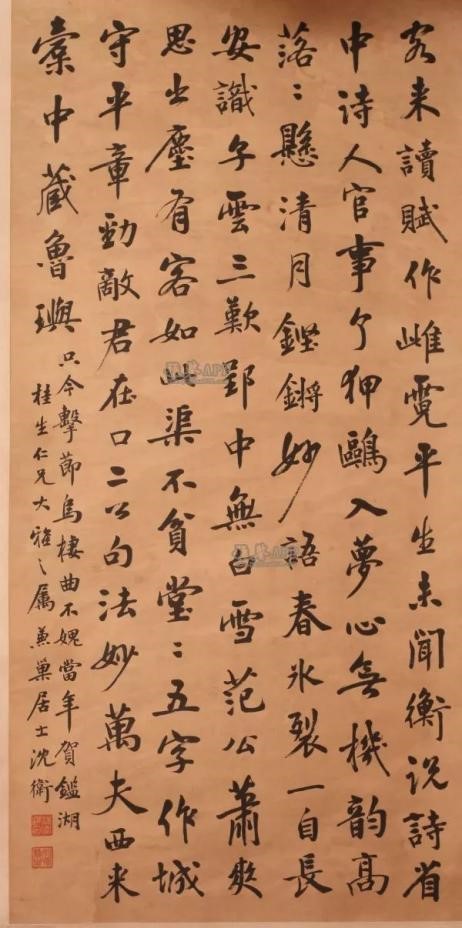 客来讀賦作雌霓平生未聞衡说詩省
中诗人官事了狎鷗入夢心無機韵高
落〻懸清月鏗鏘妙語春氷裂一自長
安識子雲三歎郢中無白雪范公蕭爽
思出塵有客如此渠不貧堂〻五字作城
守平章勁敵君在口二公句法妙萬夫西来
橐中藏魯璵只今擊節烏棲曲不媿當年賀鑑湖
桂生仁兄大雅之属兼巢居士沈衛